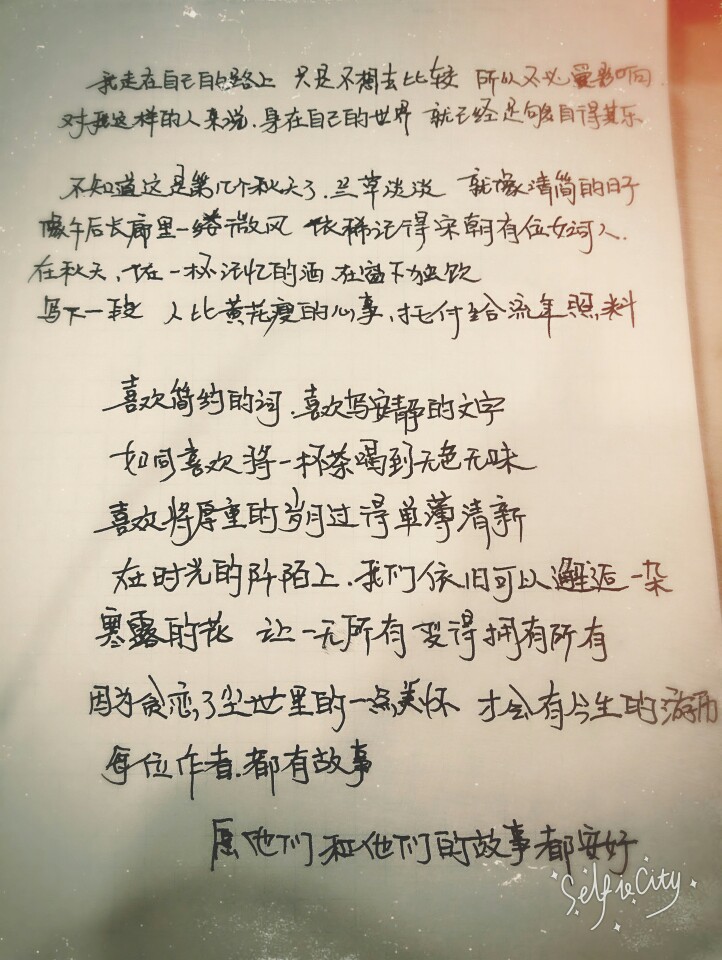 我走在自己的路上 只是不想去比较 所以不必受影响
对我这样的人来说,身在自己的世界 就已经足够自得其乐
不知道这是第几个秋天了,兰草淡淡 就像清简的日子
像午后长廊里一绺微风 依稀记得宋朝有位女词人,
在秋天,佐一杯记忆的酒,在窗下独饮
写下一段 人比黄花瘦的心事,托付给流年照料
喜欢简约的词,喜欢写安静的文字
如同喜欢将一杯茶喝到无色无味
喜欢将厚重的岁月过得单薄清新
在时光的阡陌上,我们依旧可以邂逅一朵
寒露的花 让一无所有变得拥有所有
因为贪恋了尘世里的一点美怀 才会有今生的游历
每位作者,都有故事
愿他们和他们的故事都安好
Selfie City